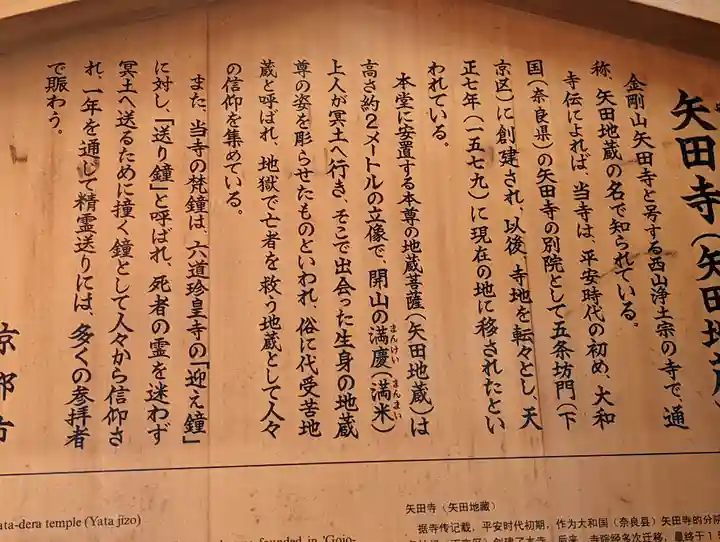 矢田寺(矢田地蔵)
金剛山矢田寺と号する西山浄土宗の寺で、通
称、矢田地蔵の名で知られている。
寺伝によれば、当寺は、平安時代の初め、大和
国(奈良県)の矢田寺の別院として五条坊門(下
京区)に創建され、以後、寺地を転々とし、天
正七年(一五七九)に現在の地に移されたとい
われている。
本堂に安置する本尊の地蔵菩薩(矢田地蔵)は
高さ約2メートルの立像で、開山の満慶(満米)
まんけい まんまい
上人が冥土へ行き、そこで出会った生身の地蔵
尊の姿を彫らせたものといわれ、俗に代受苦地
蔵と呼ばれ、地獄で亡者を救う地蔵として人々
の信仰を集めている。
また、当寺の梵鐘は、六道珍皇寺の「迎え鐘」
に対し、「送り鐘」と呼ばれ、死者の霊を迷わず
冥土へ送るために撞く鐘として人々から信仰さ
れ、一年を通じて精霊送りには、多くの参拝者
で賑わう。
京都市
ata-dera temple (Yata jizo)
founded in 'Gojo-
矢田寺(矢田地藏)
据寺传记载,平安时代初期,作为大和国(奈良县)矢田寺的分院